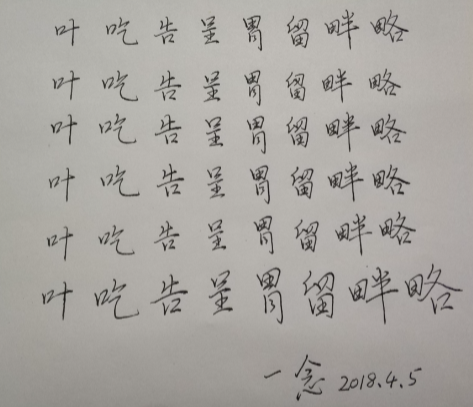 叶吃告呈胃留畔略
叶吃告呈胃留畔略
叶吃告呈胃留畔略
叶吃告呈胃留畔略
叶吃告呈胃留畔略
叶吃告呈胃留畔略
一念 2018.4.5